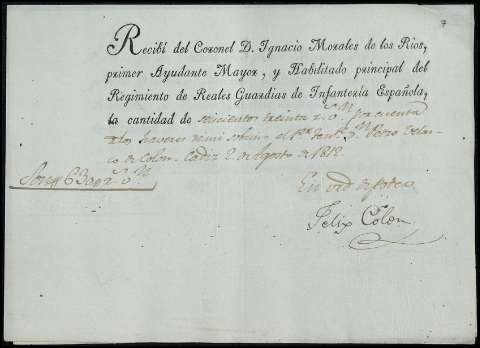 7
Recibí del Coronel D. Ignacio Morales de los Rios,
primer Ayudante Mayor, y Habilitado principal del
Regimiento de Reales Guardias de Infantería Española,
la cantidad de seiscientos treinta r.s v.n por cuenta
de los haveres de mi sobrino el 1.er Ten.te D.n Pedro Velas
co de Colon. Cadiz 2 de Agosto de 1812.
Son 630 r.s v.n
En vrd de poder
Felix Colon